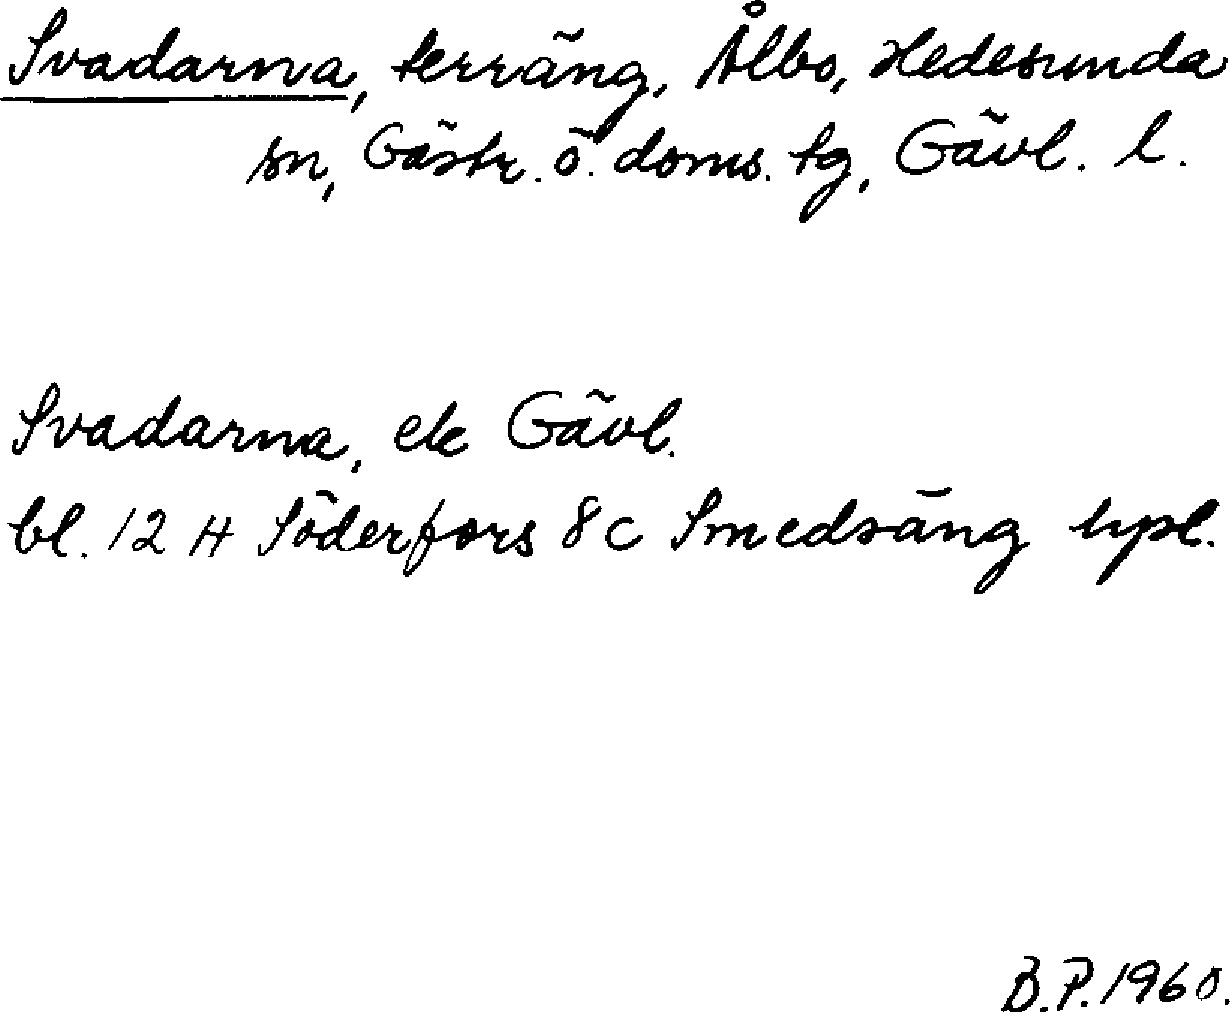 Svadarna, terräng, Ålbo, Hedesunda
sn, Gästr. ö. doms. tg, Gävl. l.
Svadarna, ek Gävl.
bl. 12 H Söderfors 8 c Smedsäng Upl.
B.P. 1960.